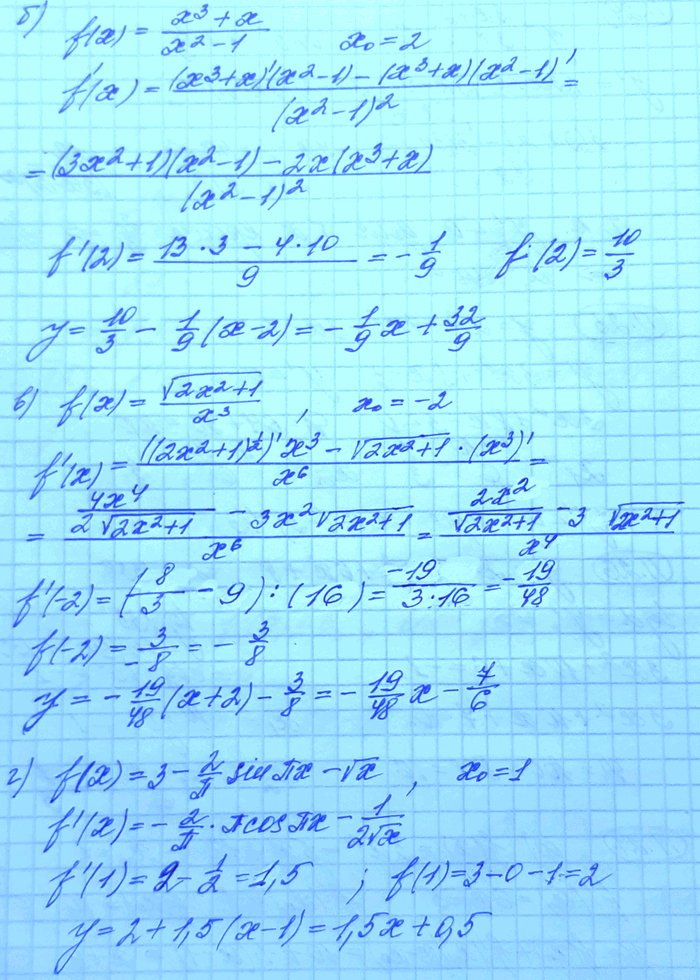 б) f(x) = (x³ + x)/(x² - 1)   x₀ = 2
f'(x) = ((x³+x)'(x²-1) - (x³+x)(x²-1)')/(x²-1)² =
= ((3x²+1)(x²-1) - 2x(x³+x))/(x²-1)²
f'(2) = (13·3 - 4·10)/9 = -1/9   f(2) = 10/3
y = 10/3 - 1/9(x-2) = -1/9x + 32/9
в) f(x) = √(2x²+1)/x³ , x₀ = -2
f'(x) = (((2x²+1)^(1/2))'x³ - √(2x²+1)·(x³)')/x⁶ =
= (4x⁴/(2√(2x²+1)) - 3x²√(2x²+1))/x⁶ = (2x²/√(2x²+1) - 3 √(2x²+1))/x⁴
f'(-2) = (8/3 - 9) : (16) = -19/(3·16) = -19/48
f(-2) = 3/-8 = -3/8
y = -19/48(x+2) - 3/8 = -19/48x - 7/6
г) f(x) = 3 - 2/π sin πx - √x , x₀ = 1
f'(x) = -2/π · π cos πx - 1/(2√x)
f'(1) = 2 - 1/2 = 1,5 ; f(1) = 3 - 0 - 1 = 2
y = 2 + 1,5(x-1) = 1,5x + 0,5